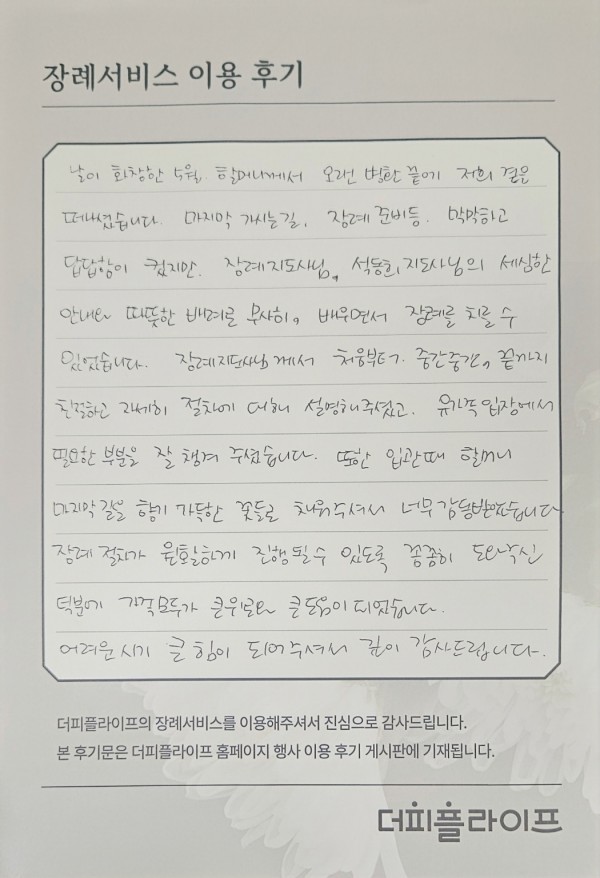 장례서비스 이용 후기
날이 화창한 5월. 할머니께서 오랜 병환 끝에 저희 곁을
떠나셨습니다. 마지막 가시는길, 장례 준비등. 막막하고
답답함이 컸지만. 장례지도사님, 석동희 지도사님의 세심한
안내와 따뜻한 배려로 무사히, 배우면서 장례를 치를 수
있었습니다. 장례지도사님께서 처음부터 중간중간, 끝까지
친절하고 자세히 절차에 대해 설명해주셨고. 유가족 입장에서
필요한 부분을 잘 챙겨 주셨습니다. 또한 입관때 할머니
마지막 길을 향기 가득한 꽃들로 채워주셔서 너무 감동받았습니다
장례 절차가 원활하게 진행 될 수 있도록 꼼꼼히 도와주신
덕분에 가족 모두가 큰위로와 큰도움이 되었습니다.
어려운 시기 큰 힘이 되어 주셔서 깊이 감사드립니다.
더피플라이프의 장례서비스를 이용해주셔서 진심으로 감사드립니다.
본 후기문은 더피플라이프 홈페이지 행사 이용 후기 게시판에 기재됩니다.
더피플라이프